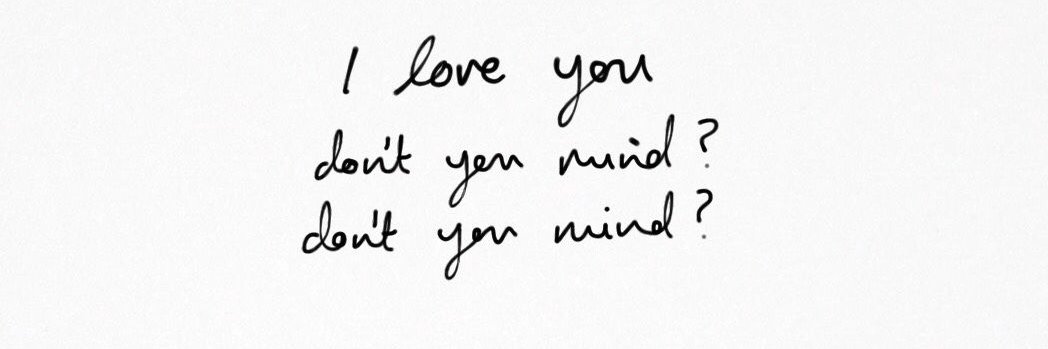 I love you
don't you mind?
don't you mind?